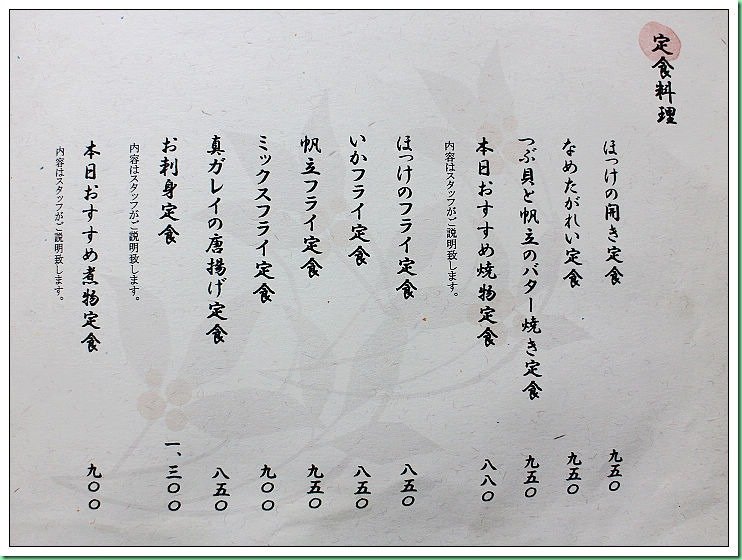 定食料理
ほっけの開き定食 九五〇
なめたがれい定食 九五〇
つぶ貝と帆立のバター焼き定食 九五〇
本日おすすめ焼物定食 八八〇
内容はスタッフがご説明致します。
ほっけのフライ定食 八五〇
いかフライ定食 八五〇
帆立フライ定食 九五〇
ミックスフライ定食 九〇〇
真ガレイの唐揚げ定食 八五〇
お刺身定食 一、三〇〇
内容はスタッフがご説明致します。
本日おすすめ煮物定食 九〇〇
内容はスタッフがご説明致します。